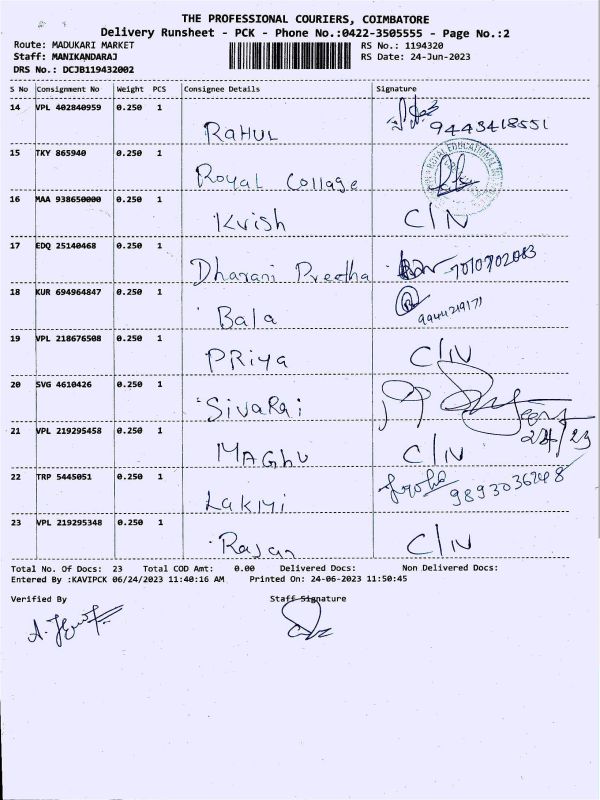 THE PROFESSIONAL COURIERS, COIMBATORE
Delivery Runsheet - PCK - Phone No.:0422-3505555 - Page No.:2
Route: MADUKARI MARKET RS No.: 1194320
Staff: MANIKANDARAJ RS Date: 24-Jun-2023
DRS No.: DCJB119432002
S No Consignment No Weight PCS Consignee Details Signature
14 VPL 402840959 0.250 1
RAHUL 9443418551
15 TKY 865940 0.250 1
Royal Collage ROYAL EDUCATIONAL
16 MAA 938650000 0.250 1
Kvish C/N
17 EDQ 25140468 0.250 1
Dharani Preetha 7010702083
18 KUR 694964847 0.250 1
Bala 9944219171
19 VPL 218676508 0.250 1
PRiya C/N
20 SVG 4610426 0.250 1
SivaRaj
21 VPL 219295458 0.250 1 24/23
MAGHU C/N
22 TRP 5445051 0.250 1
Lakmi 9893036248
23 VPL 219295348 0.250 1
Rajan C/N
Total No. Of Docs: 23 Total COD Amt: 0.00 Delivered Docs: Non Delivered Docs:
Entered By :KAVIPCK 06/24/2023 11:40:16 AM Printed On: 24-06-2023 11:50:45
Verified By Staff Signature